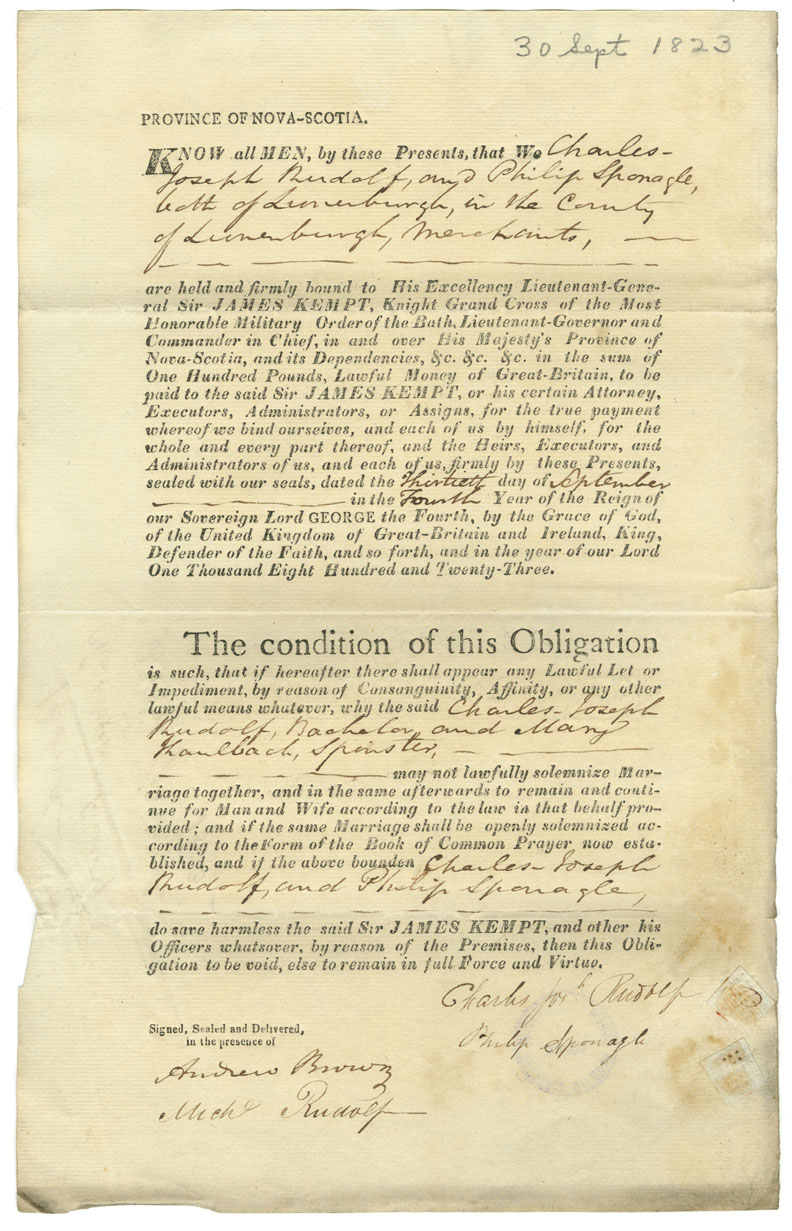 30 Sept 1823
PROVINCE OF NOVA-SCOTIA.
KNOW all MEN, by these Presents, that We Charles-
Joseph Rudolf, and Philip Sponagle,
both of Lunenburgh, in the County
of Lunenburgh, Merchants,
are held and firmly bound to His Excellency Lieutenant-Gene-
ral Sir JAMES KEMPT, Knight Grand Cross of the Most
Honorable Military Order of the Bath, Lieutenant-Governor and
Commander in Chief, in and over His Majesty's Province of
Nova-Scotia, and its Dependencies, &c. &c. &c. in the sum of
One Hundred Pounds, Lawful Money of Great-Britain, to be
paid to the said Sir JAMES KEMPT, or his certain Attorney,
Executors, Administrators, or Assigns, for the true payment
whereof we bind ourseives, and each of us by himself, for the
whole and every part thereof, and the Heirs, Executors, and
Administrators of us, and each of us, firmly by these Presents,
sealed with our seals, dated the Thirtieth day of September
in the Fourth Year of the Reign of
our Sovereign Lord GEORGE the Fourth, by the Grace of God,
of the United Kingdom of Great-Britain and Ireland, King,
Defender of the Faith, and so forth, and in the year of our Lord
One Thousand Eight Hundred and Twenty-Three.
The condition of this Obligation
is such, that if hereafter there shall appear any Lawful Let or
Impediment, by reason of Consanguinity, Affinity, or any other
lawful means whatever, why the said Charles-Joseph
Rudolf, Bachelor, and Mary
Kaulback, Spinster,
may not lawfully solemnize Mar-
riage together, and in the same afterwards to remain and conti-
nue for Man and Wife according to the law in that behalf pro-
vided; and if the same Marriage shall be openly solemnized ac-
cording to the Form of the Book of Common Prayer now esta-
blished, and if the above bounden Charles-Joseph
Rudolf, and Philip Sponagle,
do save harmless the said Sir JAMES KEMPT, and other his
Officers whatsover, by reason of the Premises, then this Obli-
gation to be void, else to remain in full Force and Virtue.
Charles Jos.h Rudolf
Philip Sponagle
Signed, Sealed and Delivered,
in the presence of
Andrew Brown
Mich.l Rudolf